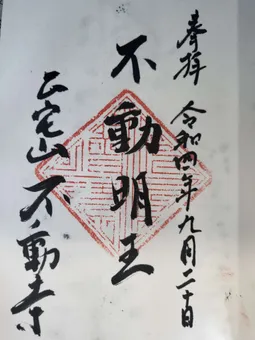 奉拝
令和四年九月二十日
不動明王
正宅山 不動寺